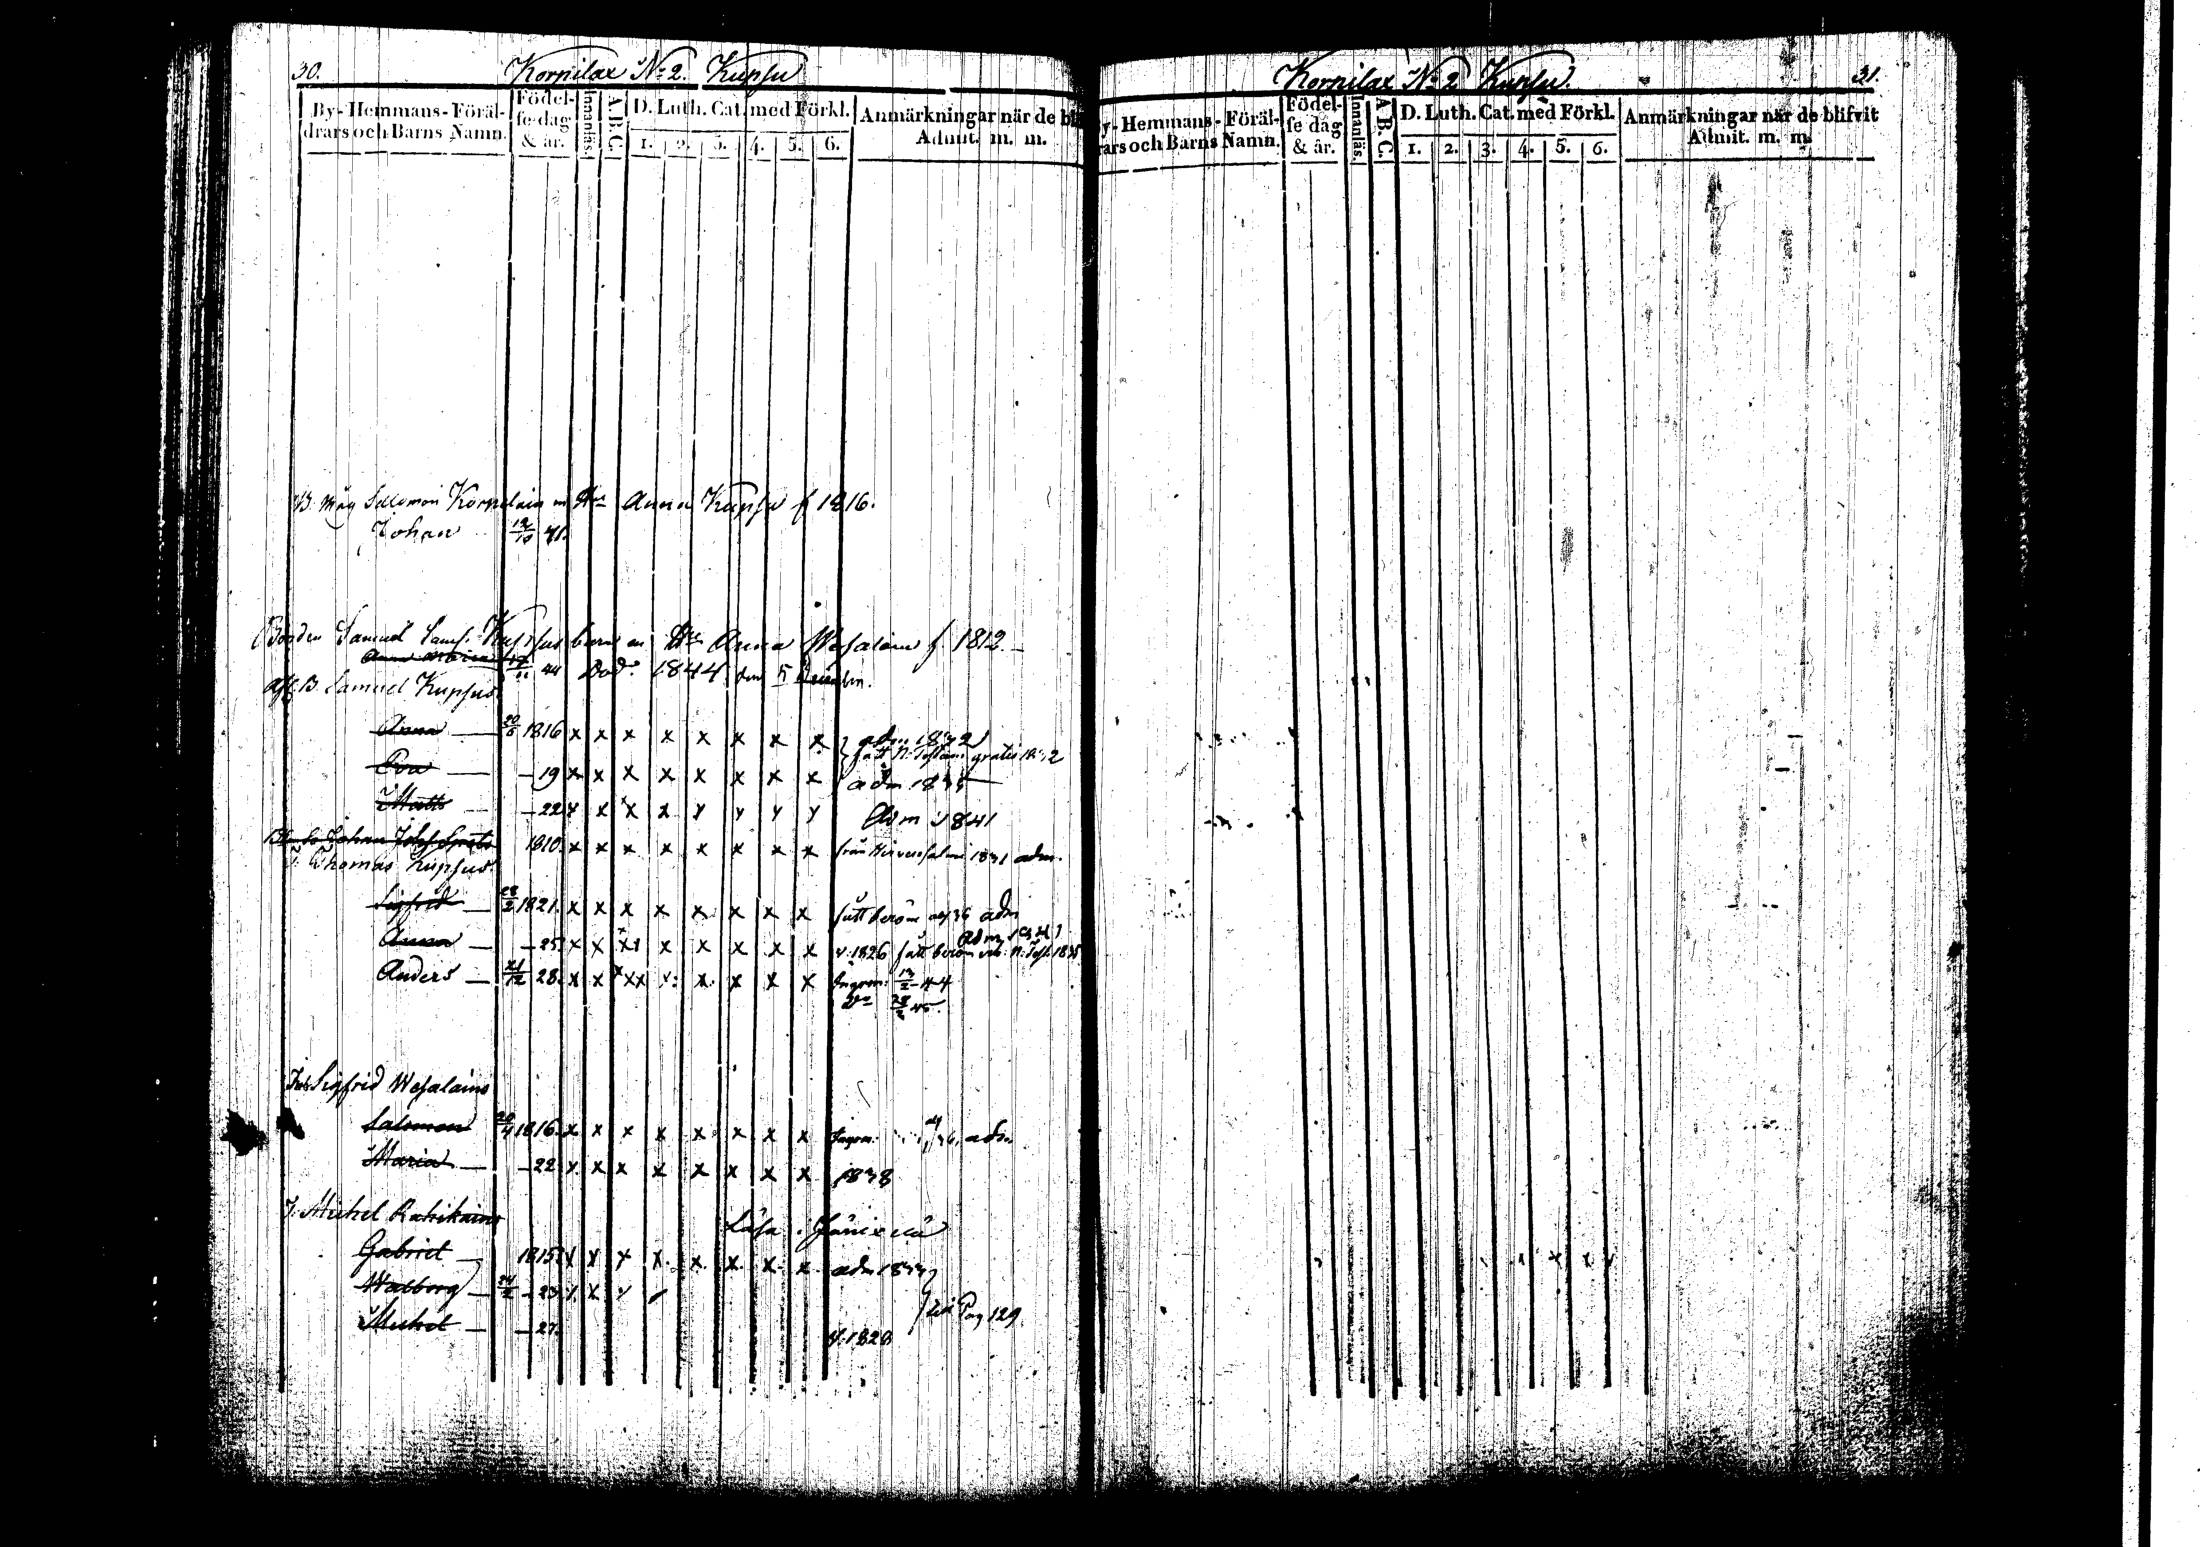 30.
Kornilax No 2. Kupsu
By- Hemmans- Föräl-
drars och Barns Namn.
Födel-
se dag
& år.
Innanläs.
A.B.C.
D. Luth. Cat. med Förkl.
1. 2. 3. 4. 5. 6.
Anmärkningar när de bli
Admit. m. m.
B. Måg Salomon Kornelain m Hu Anna Kupsu f 1816.
Johan 12/10 41.
Bonden Samuel Saml. Kupsus barn m Hu Anna Wesalain f. 1812.
Anna Maria 44 Död 1844 den 5
Afl. B. Samuel Kupsus.
Anna — 1816 x x x x x x x x adm 1832
fått N. Testam gratis 1832
Eva — — 19 x x x x x x x x adm 1835
Matts — — 22 x x x x x x x x Adm 1841
Johan 1810. x x x x x x x x från Hirvensalmi 1831 adm.
I. Thomas Kupsus.
Sigfrid — 28/2 1821. x x x x x x x x fått beröm 36 adm
Adm 1841
Anna — — 25 x x x x x x x x v. 1826 fått beröm N. Test. 1835
Anders — 21/12 28. x x x x x x x x 13/2 44
28/2 45.
Sigfrid Wesalains
Salomon 20/4 1816. x x x x x x x x 36 adm
Maria — — 22 x x x x x x x x 1838
I. Michel Rahikains
Läsa
Gabriel — 1815 x x x x x x x x adm 1833
Walborg — 24/2 — 23 x x x
Pag 129
Michel — — 27. v. 1828
Kornilax No 2 Kupsu.
31.
y- Hemmans- Föräl-
rars och Barns Namn.
Födel-
se dag
& år.
Innanläs.
A. B. C.
D. Luth. Cat. med Förkl.
1. 2. 3. 4. 5. 6.
Anmärkningar när de blifvit
Admit. m. m.